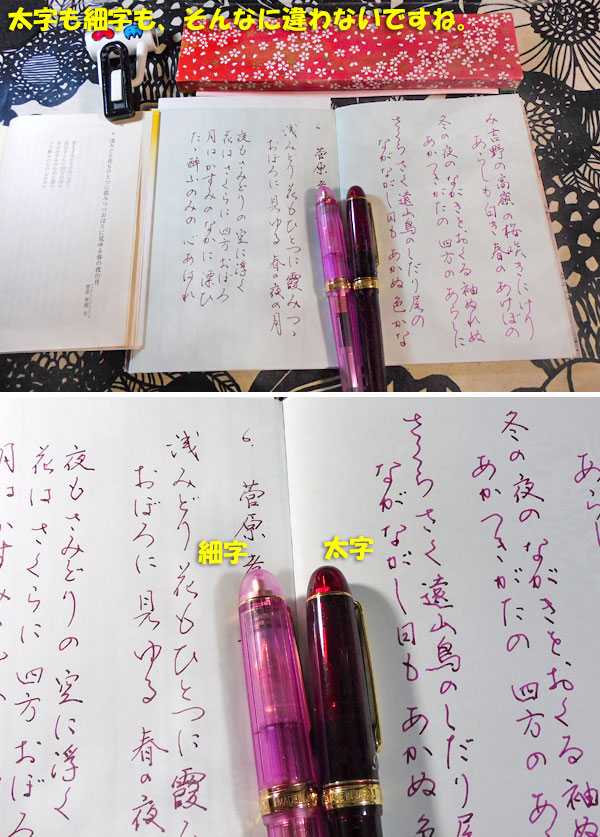 太字も細字も、そんなに違わないですね。
み吉野の高嶺の桜咲きにけり
あらしも白き春のあけぼの
冬の夜のながきをおくる袖ぬれぬ
あかつきがたの四方のあらしに
さくらさく遠山鳥のしだり尾の
ながながし日もあかぬ色かな
6. 菅原孝
浅みどり花もひとつに霞みつゝ
おぼろに見ゆる春の夜の月
夜もさみどりの空に浮く
花はさくらに四方おぼろ
月はかすみのなかに漂ひ
たゞ酔ふのみの心あくがれ
浅みどり花もひとつに霞みつつおぼろに見ゆる春の夜の月
細字
太字
あらし
冬の夜のながきをおくる袖
あかつきがたの四方のあ
さくらさく遠山鳥のしだり尾
ながながし日もあかぬ色
6. 菅原孝
浅みどり花もひとつに霞
おぼろに見ゆる春の夜
夜もさみどりの空に浮く
花はさくらに四方おぼろ
月はかすみ
MADE